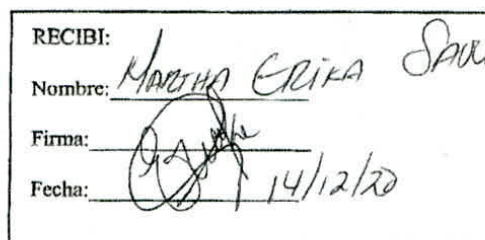 RECIBI:
Nombre: MARTHA ERIKA
Firma:
Fecha: 14/12/20